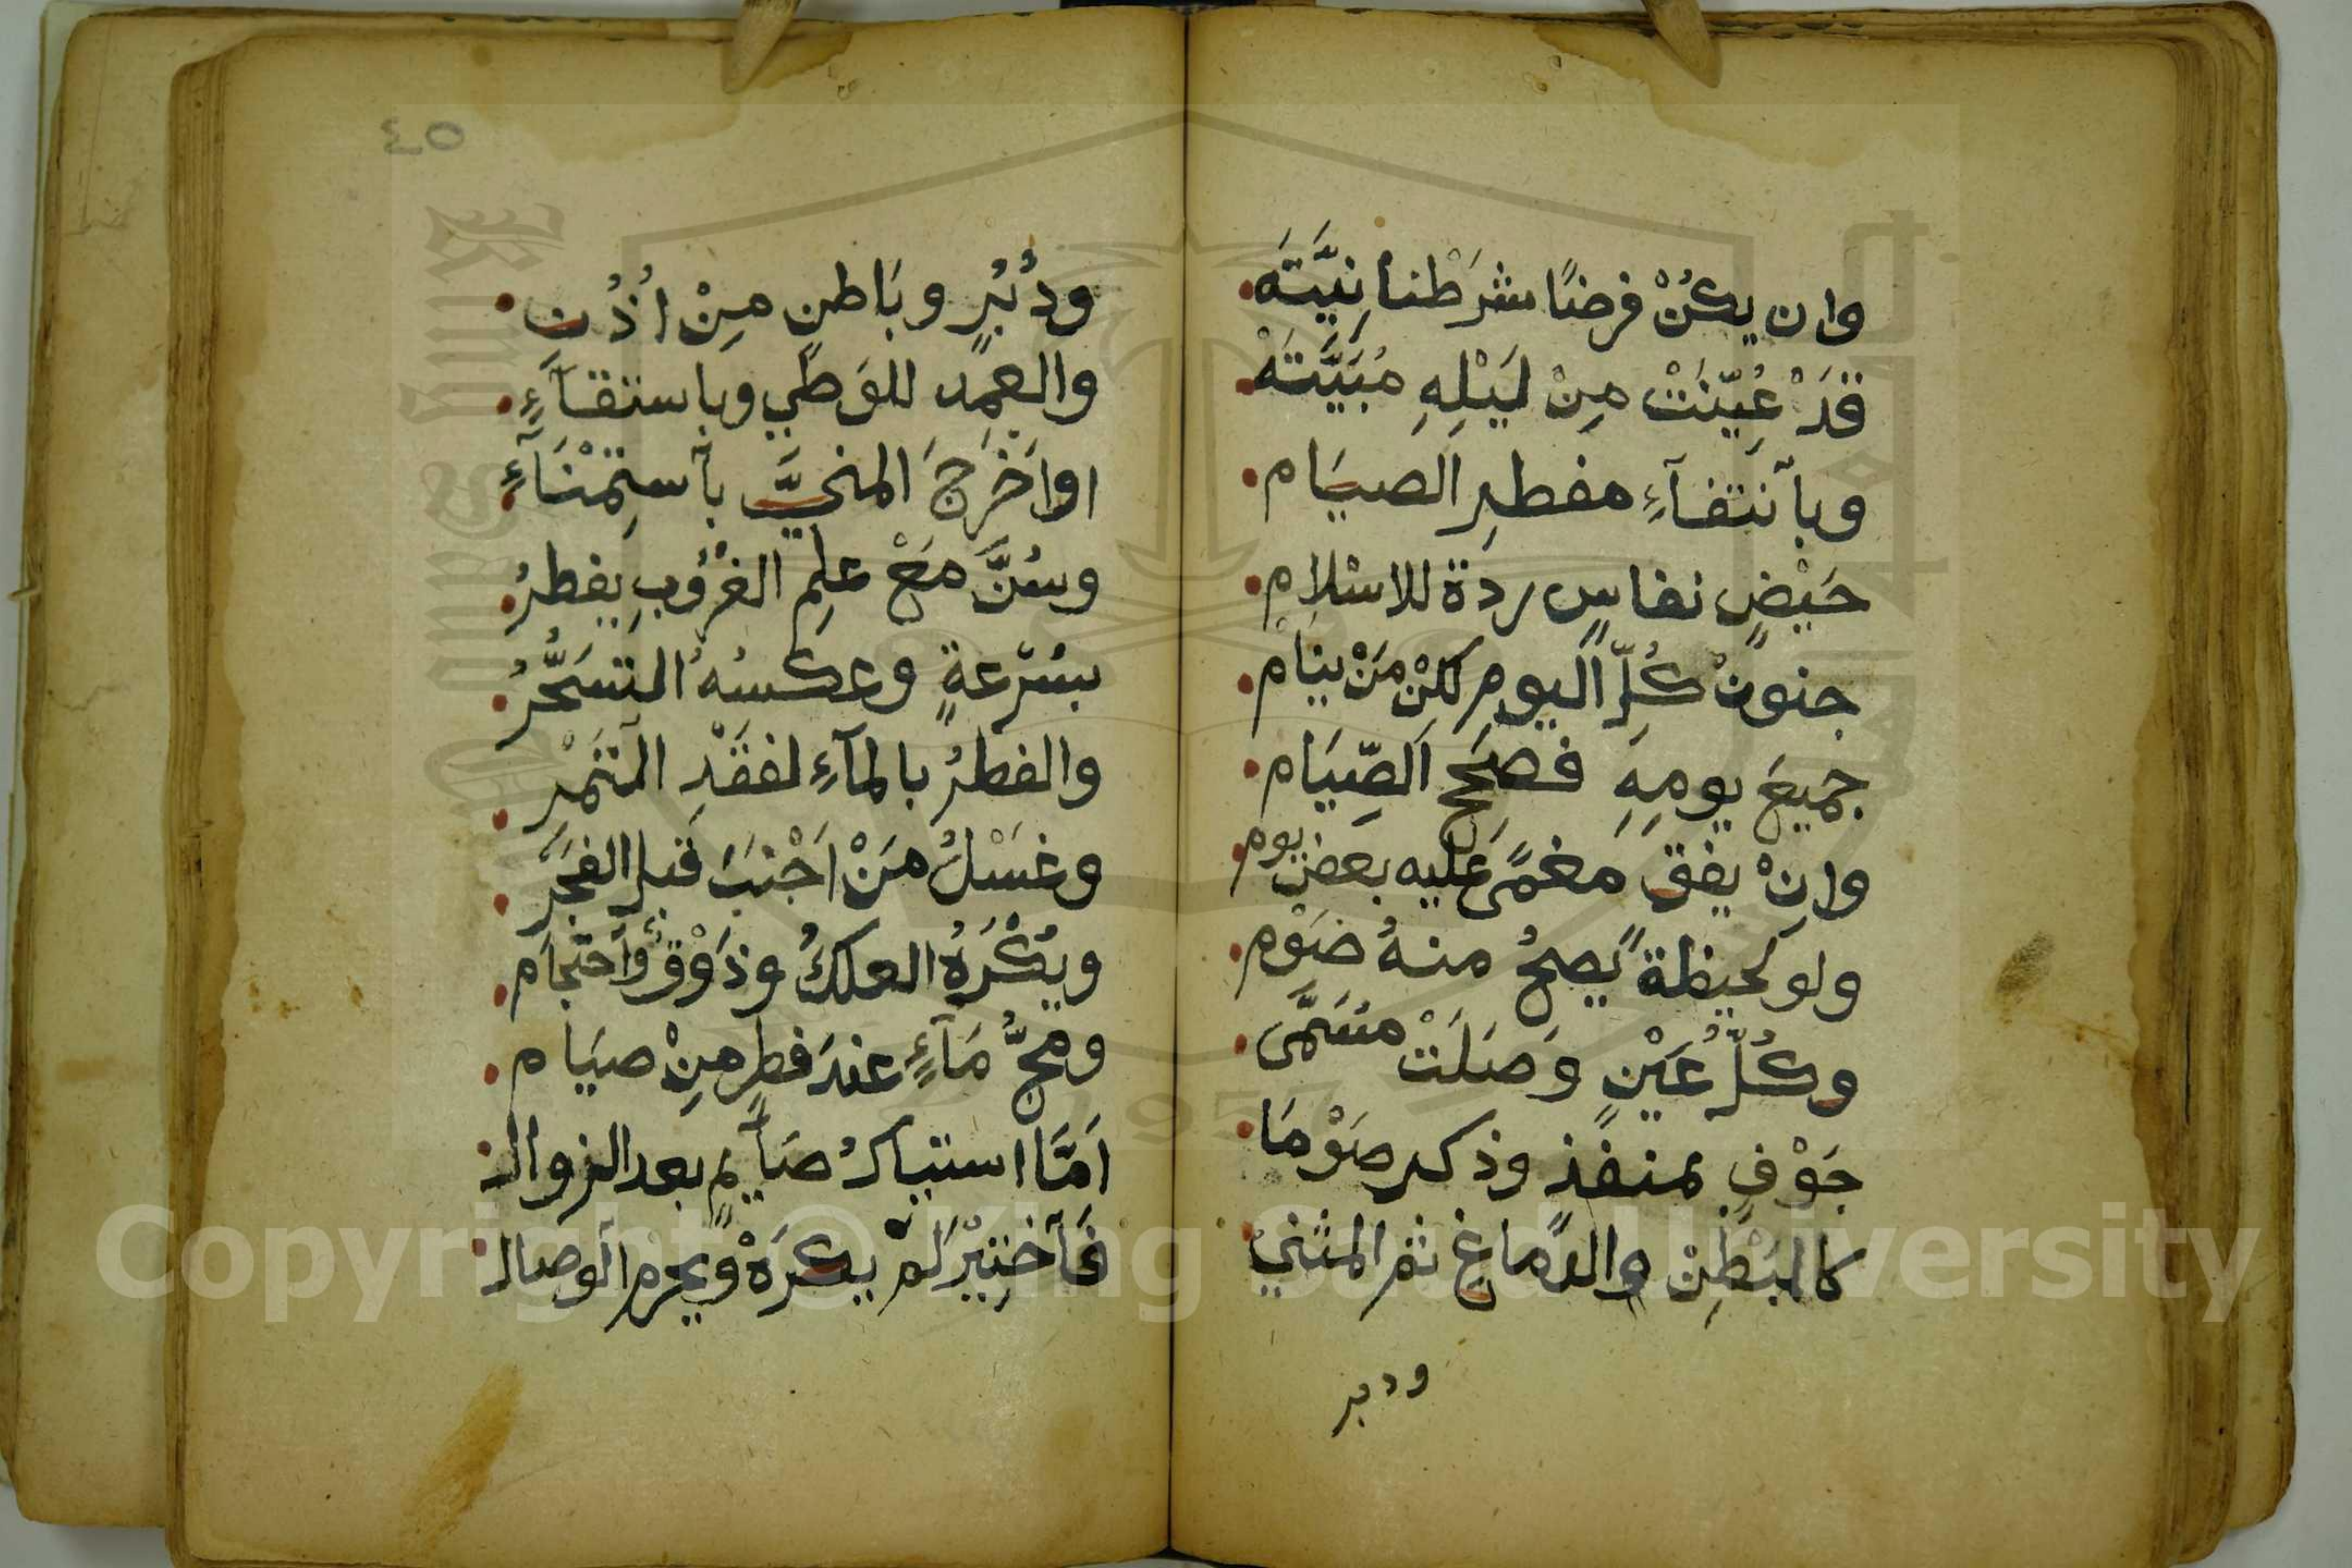 وان يكُنْ فرضًا شرَطْنا نِيَّتَه
قَدْ عُيِّنَتْ مِنْ لَيْلِهِ مُبَيَّتَهْ
وبانتفآءِ مفطرِ الصيَام
حَيْضٍ نفاسٍ ردة للاسلام
جنونُ كُلِّ اليومِ لكنْ مَنْ ينام
جميعَ يومِهِ فصحح الصِّيَام
وانْ يفق مغمًى عليه بعض يوم
ولو لحيظةً يصحُ منهُ صَوْم
وكُلُّ عَيْنٍ وَصَلَتْ مسَمَّى
جَوْفٍ بمنفذٍ وذكر صَوْمَا
كالبَطْنِ والدماغِ ثم المثني
ودبر
٤٥
ودُبُرٍ وبَاطنٍ مِنْ اُذُن
والعمد للوَطي وباستقآءٍ
او اَخْرَجَ المنيَّ باستِمْنَآءٍ
وسُنَّ مَعْ علمِ الغُرُوبِ يفطرُ
بسُرْعةٍ وعكسُهُ التسَحُّرُ
والفطرُ بالمآءِ لفَقْدِ التَّمْرِ
وغسْلُ مَنْ اَجْنَبَ قَبل الفجَرِ
ويُكْرَهُ العلكُ وذَوْقٌ واحتجام
ومجُّ مَآءٍ عندَ فطرٍ مِنْ صيَام
اَمَّا استياكُ صَآيمٍ بعد الزوال
فَاختِيْرَ لم يكرَهْ ويحرم الوصال
Copyright © King Saud University